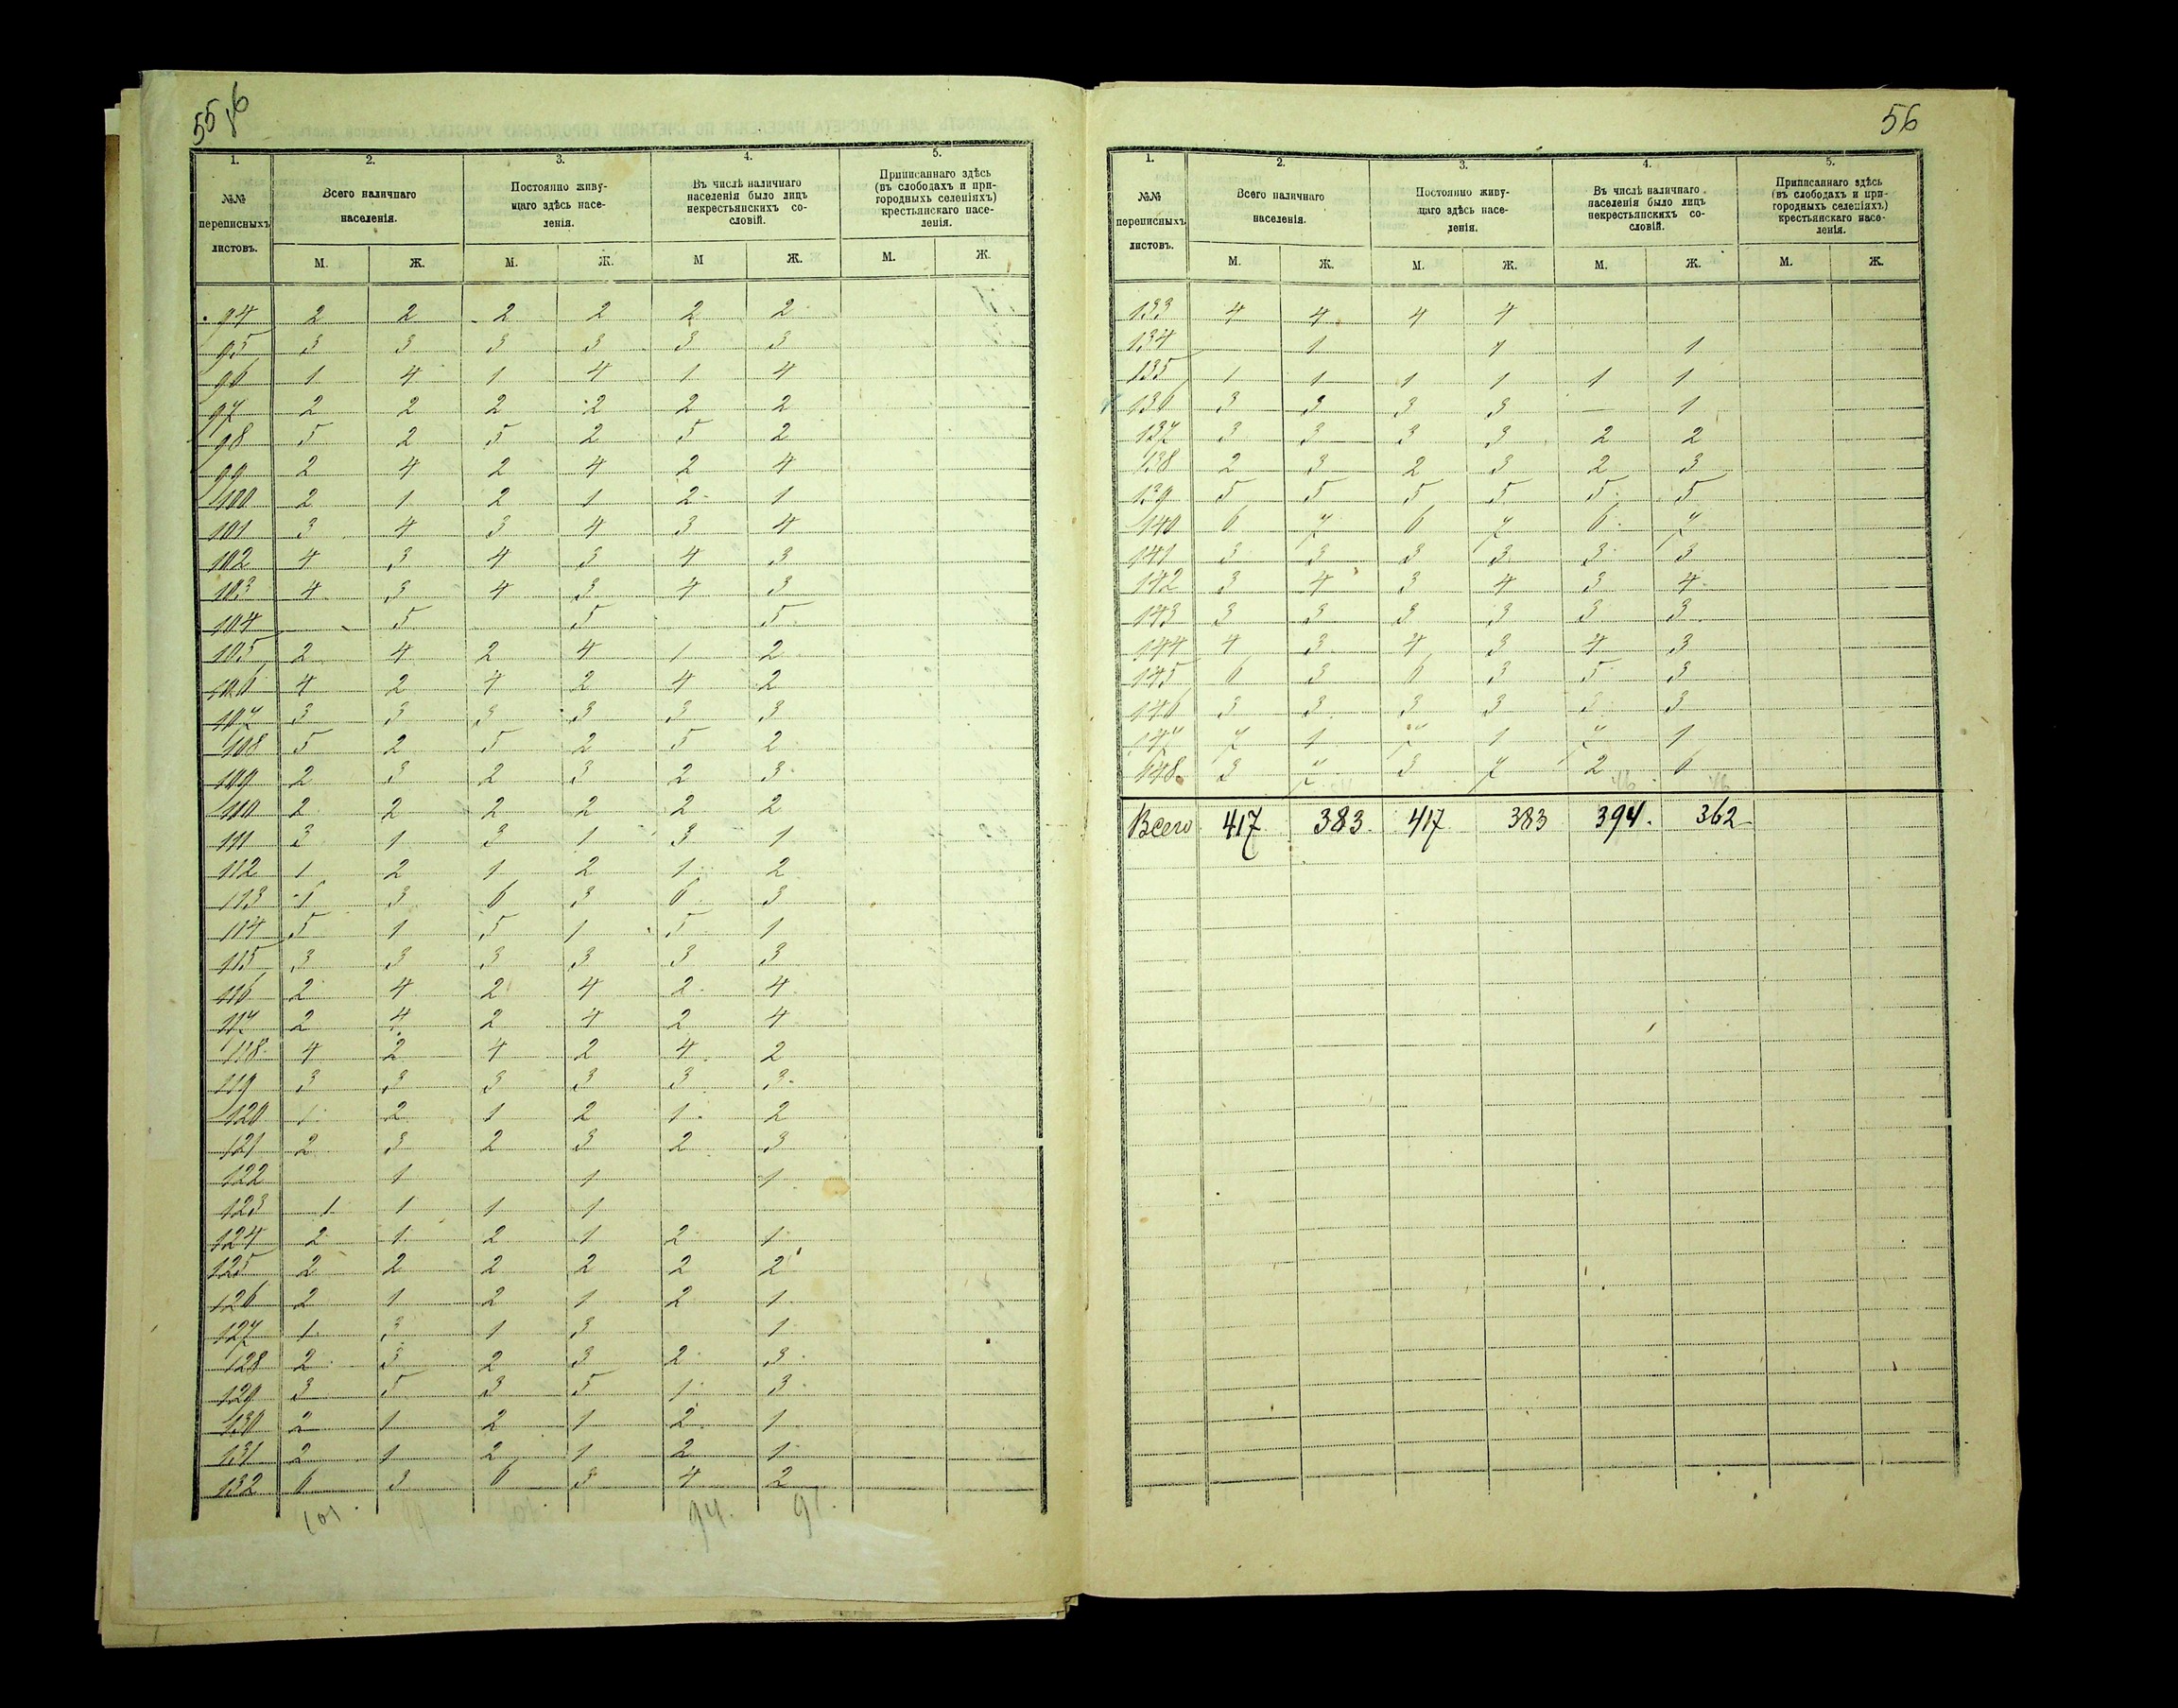 55 об
1. 2. 3. 4. 5.
№№ переписныхъ листовъ. Всего наличнаго населенія. Постоянно живущаго здѣсь населенія. Въ числѣ наличнаго населенія было лицъ некрестьянскихъ сословій. Приписаннаго здѣсь (въ слободахъ и пригородныхъ селеніяхъ) крестьянскаго населенія.
М. Ж. М. Ж. М Ж. М. Ж.
94 2 2 2 2 2 2
95 3 3 3 3 3 3
96 1 4 1 4 1 4
97 2 2 2 2 2 2
98 5 2 5 2 5 2
99 2 4 2 4 2 4
100 2 1 2 1 2 1
101 3 4 3 4 3 4
102 4 3 4 3 4 3
103 4 3 4 3 4 3
104 5 5 5
105 2 4 2 4 1 2
106 4 2 4 2 4 2
107 3 3 3 3 3 3
108 5 2 5 2 5 2
109 2 3 2 3 2 3
110 2 2 2 2 2 2
111 3 1 3 1 3 1
112 1 2 1 2 1 2
113 3 6 3 6 3
114 5 1 5 1 5 1
115 3 3 3 3 3 3
116 2 4 2 4 2 4
117 2 4 2 4 2 4
118 4 2 4 2 4 2
119 3 3 3 3 3 3
120 1 2 1 2 1 2
121 2 3 2 3 2 3
122 1 1 1
123 1 1 1 1
124 2 1 2 1 2 1
125 2 2 2 2 2 2
126 2 1 2 1 2 1
127 1 3 1 3 1
128 2 3 2 3 2 3
129 3 5 3 5 1 3
130 2 1 2 1 2 1
131 2 1 2 1 2 1
132 6 3 6 3 4 2
101 94 91
56
1. 2. 3. 4. 5.
№№ переписныхъ листовъ. Всего наличнаго населенія. Постоянно живущаго здѣсь населенія. Въ числѣ наличнаго населенія было лицъ некрестьянскихъ сословій. Приписаннаго здѣсь (въ слободахъ и пригородныхъ селеніяхъ) крестьянскаго населенія.
М. Ж. М. Ж. М. Ж. М. Ж.
133 4 4 4 4
134 1 1 1
135 1 1 1 1 1 1
136 3 3 3 3 — 1
137 3 3 3 3 2 2
138 2 3 2 3 2 3
139 5 5 5 5 5 5
140 6 7 6 7 6 7
141 3 3 3 3 3 3
142 3 4 3 4 3 4
143 3 3 3 3 3 3
144 4 3 4 3 4 3
145 6 3 6 3 5 3
146 3 3 3 3 3 3
147 7 1 7 1 7 1
148 3 7 3 7 2 6
Всего 417 383 417 383 394 362